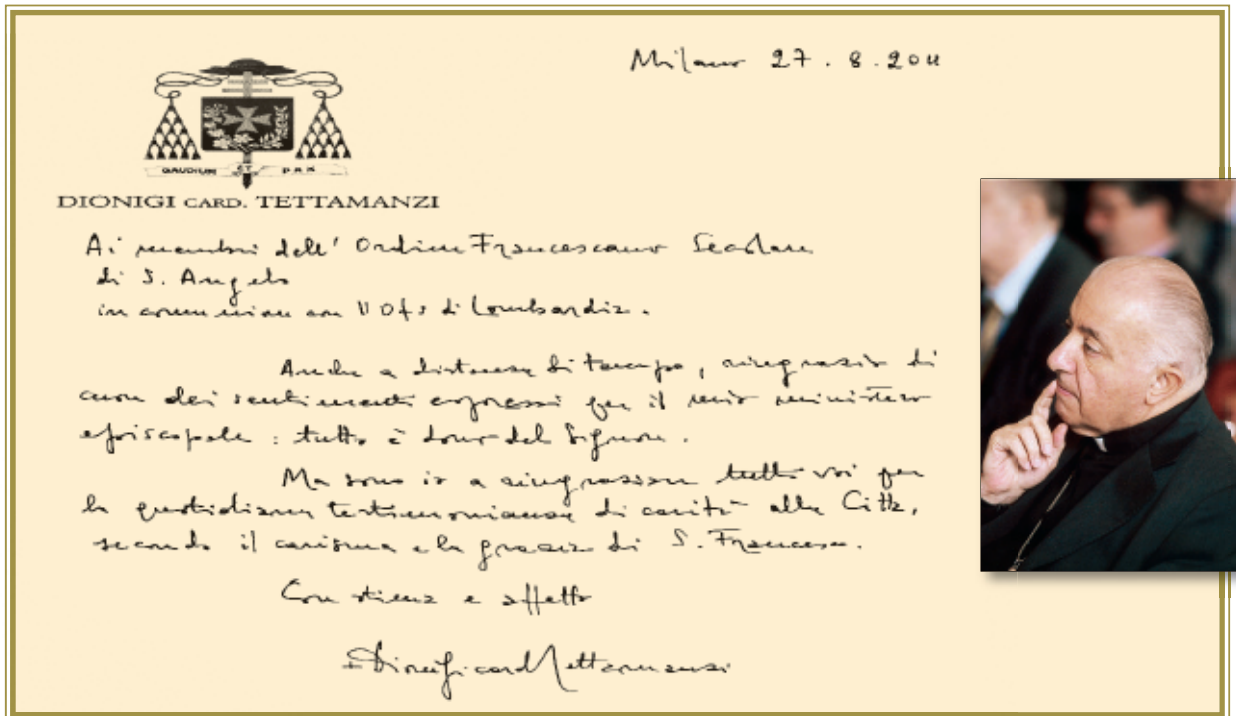 Milano 27.8.2011
GAUDIUM ET PAX
DIONIGI CARD. TETTAMANZI
Ai membri dell'Ordine Francescano Secolare
di S. Angelo
in comunione con l'Ofs di Lombardia.
Anche a distanza di tempo, ringrazio di
cuore dei sentimenti espressi per il mio ministero
episcopale: tutto è dono del Signore.
Ma sono io a ringraziare tutti voi per
la quotidiana testimonianza di carità alla Città,
secondo il carisma e la grazia di S. Francesco.
Con stima e affetto
+ Dionigi card. Tettamanzi